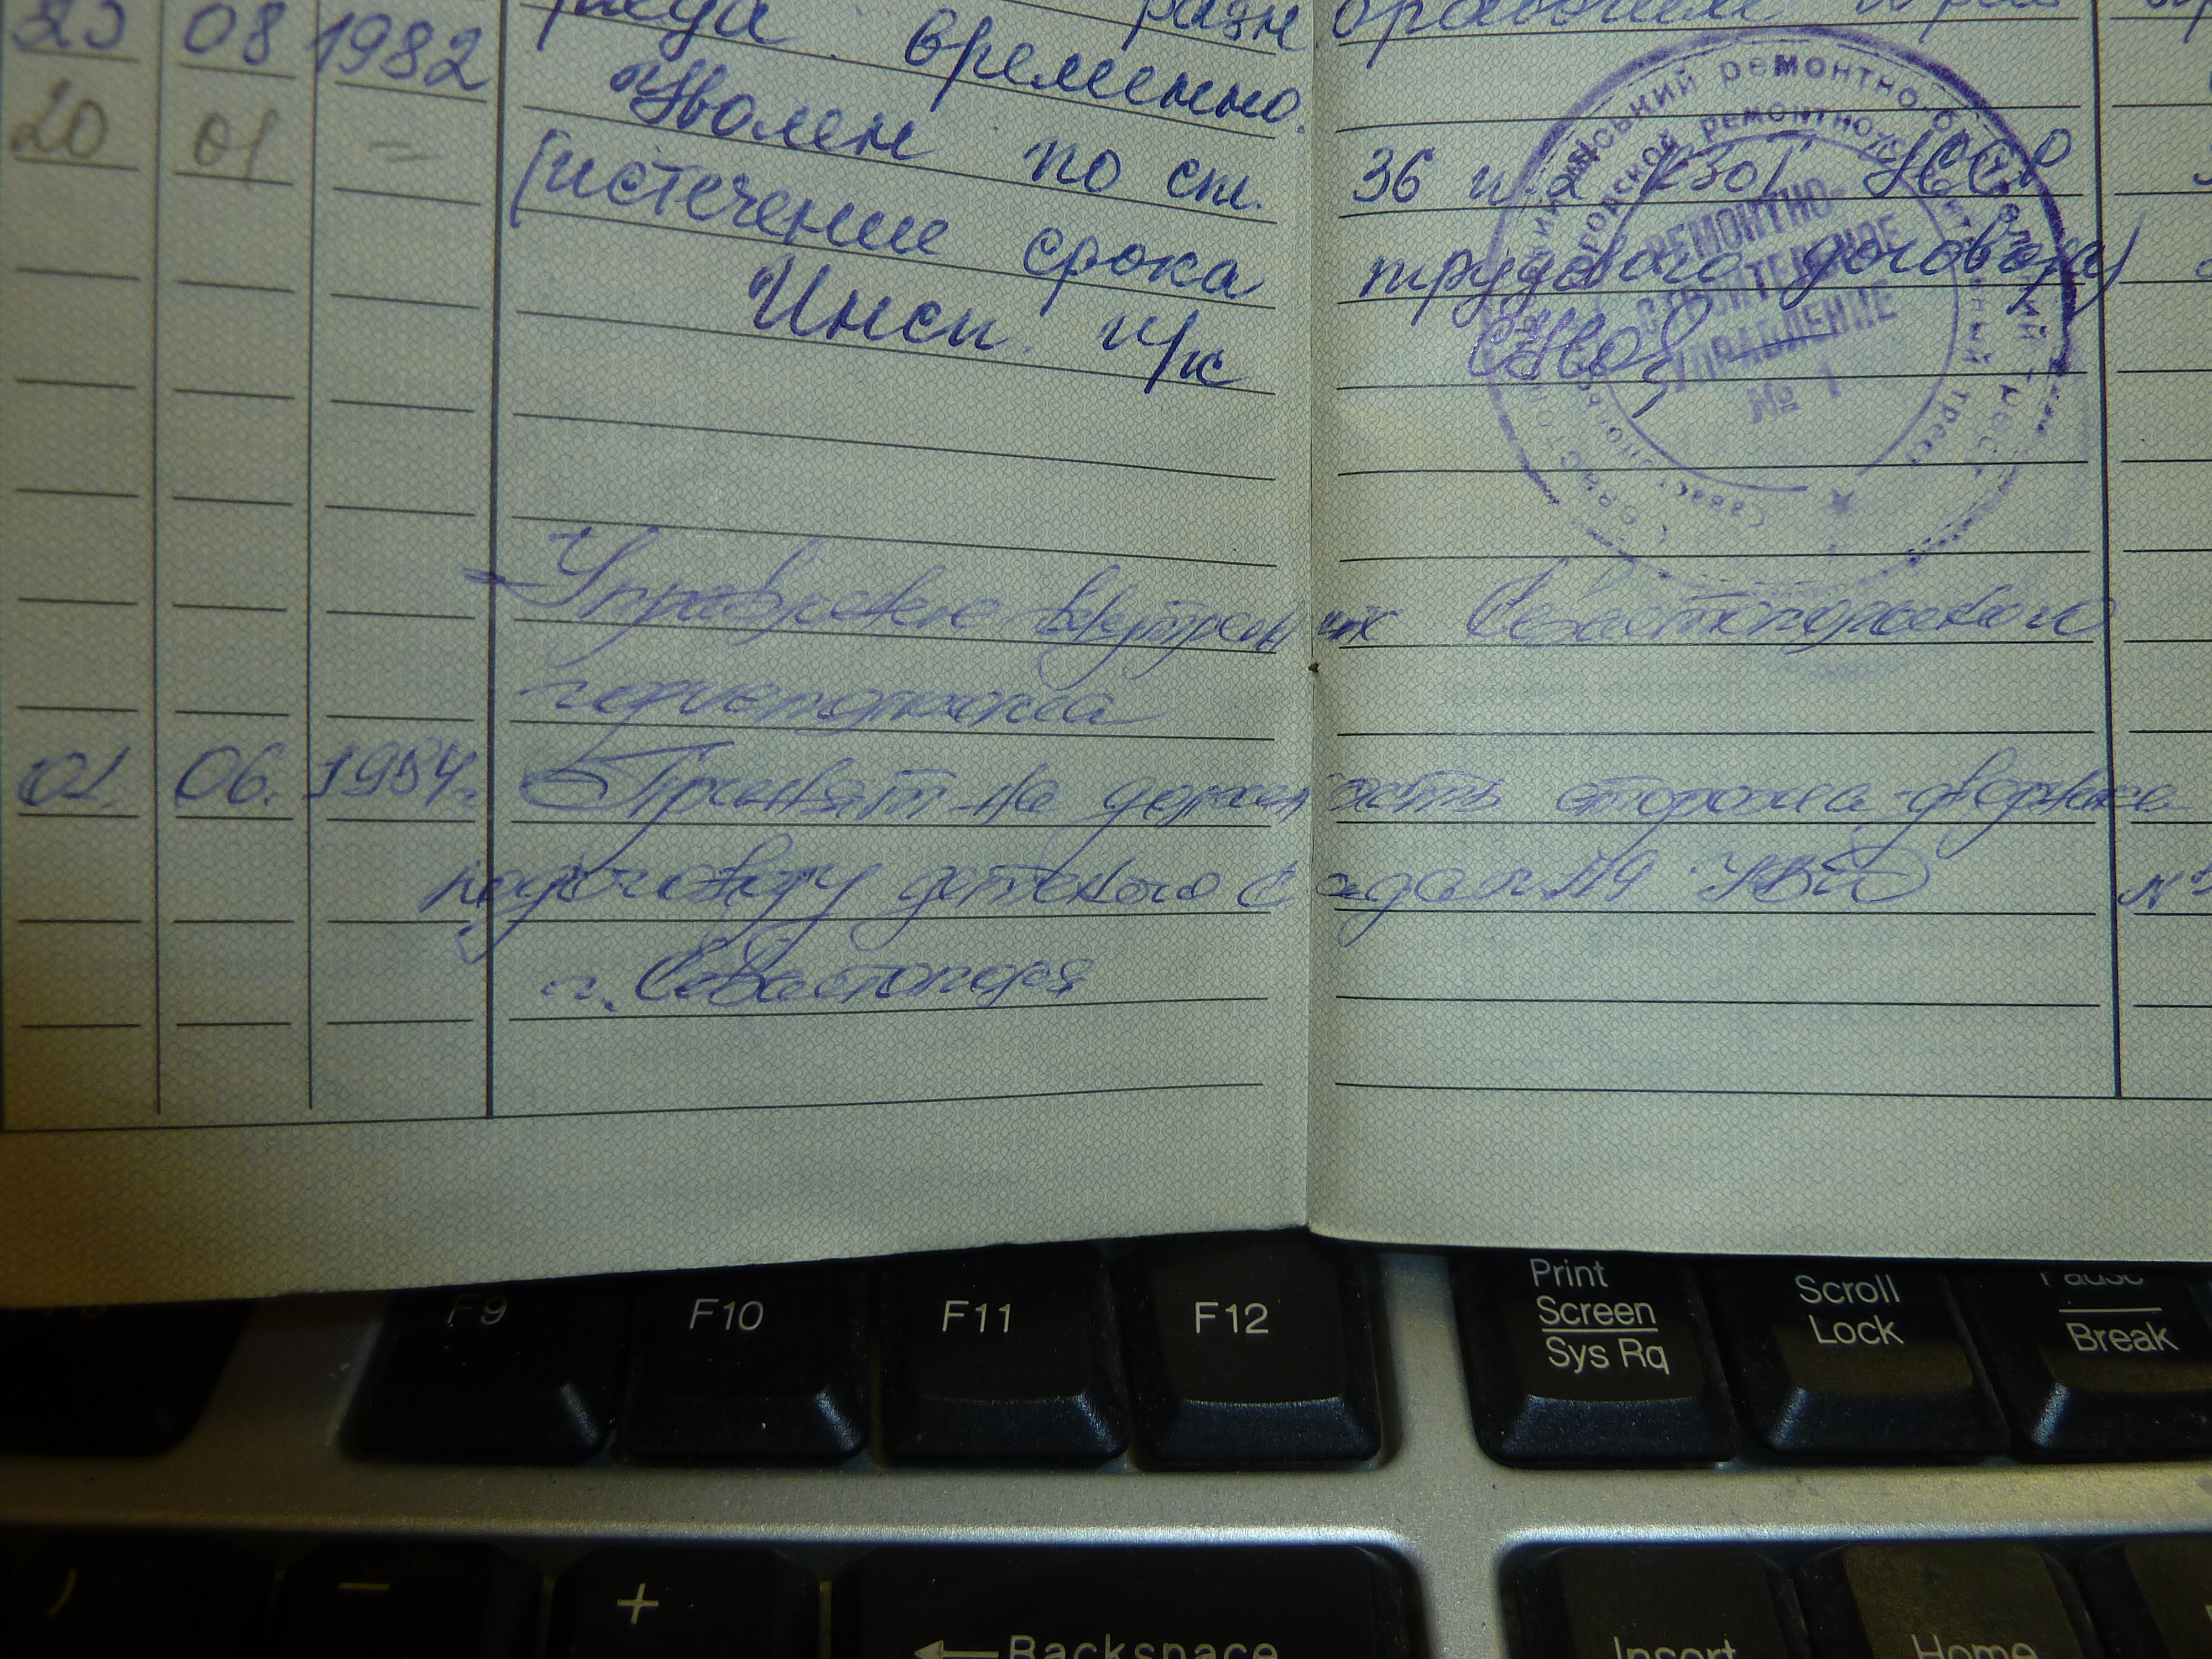 08 1982 временно.
20 01 = Уволен по ст. 36 п. 2 КЗоТ УССР
(истечение срока трудового договора)
Инсп. н/к
РЕМОНТНО-
СТРОИТЕЛЬНОЕ
УПРАВЛЕНИЕ
№ 1
Управление внутренних Севастопольского
горисполкома
01. 06. 1984г. Принят на должность сторожа-дворника
по договору детского сада №119 УВД
г. Севастополя
F9 F10 F11 F12 Print Screen Sys Rq Scroll Lock Pause Break
) - + ← Backspace Insert Home